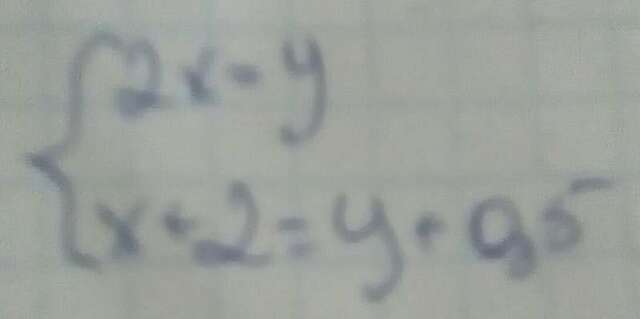 2x = y
x + 2 = y + 0,5